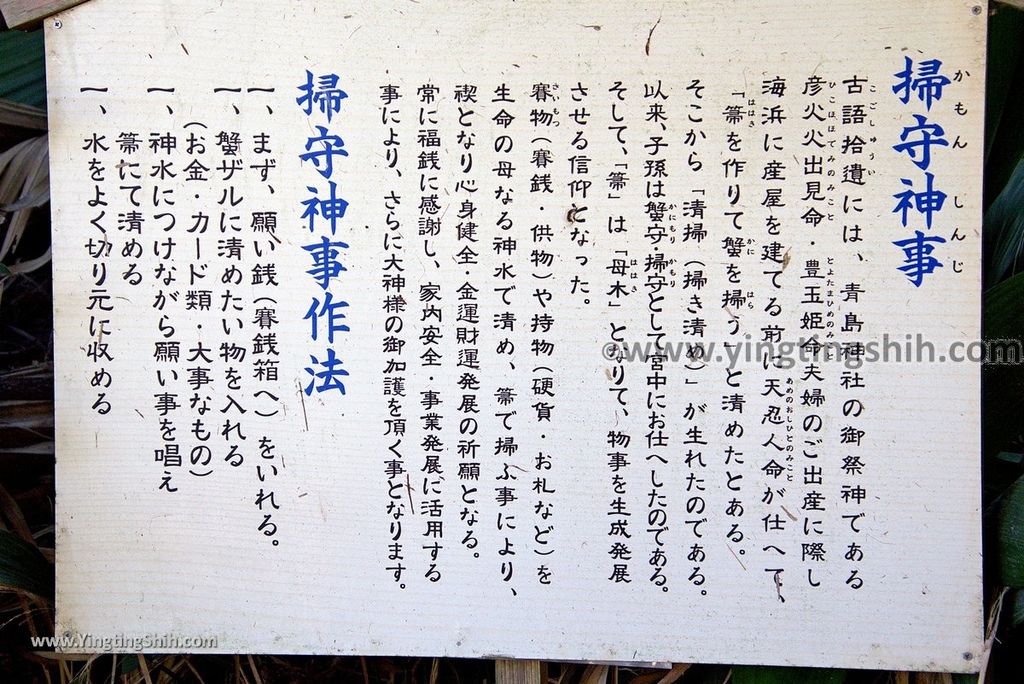 掃守神事
かもん しんじ
古語拾遺には、青島神社の御祭神である
こごしゅうい
彦火火出見命・豊玉姫命夫婦のご出産に際し
ひこほほでみのみこと とよたまひめのみこと
海浜に産屋を建てる前に天忍人命が仕へて、
あめのおしひとのみこと
「箒を作りて蟹を掃う」と清めたとある。
ははき かに はら
そこから「清掃(掃き清め)」が生れたのである。
以来、子孫は蟹守・掃守として宮中にお仕へしたのである。
かにもり かもり
そして、「箒」は「母木」となりて、物事を生成発展
ははき
させる信仰となった。
賽物(賽銭・供物)や持物(硬貨・お札など)を
さいもつ
生命の母なる神水で清め、箒で掃ふ事により、
禊となり心身健全・金運財運発展の祈願となる。
常に福銭に感謝し、家内安全・事業発展に活用する
事により、さらに大神様の御加護を頂く事となります。
掃守神事作法
一、まず、願い銭(賽銭箱へ)をいれる。
一、蟹ザルに清めたい物を入れる
(お金・カード類・大事なもの)
一、神水につけながら願い事を唱え
箒にて清める
一、水をよく切り元に収める
©www.yingtingshih.com
www.YingtingShih.com